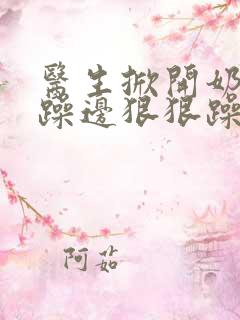 醫生掀開奶
躁邊狠狠躁
阿茹